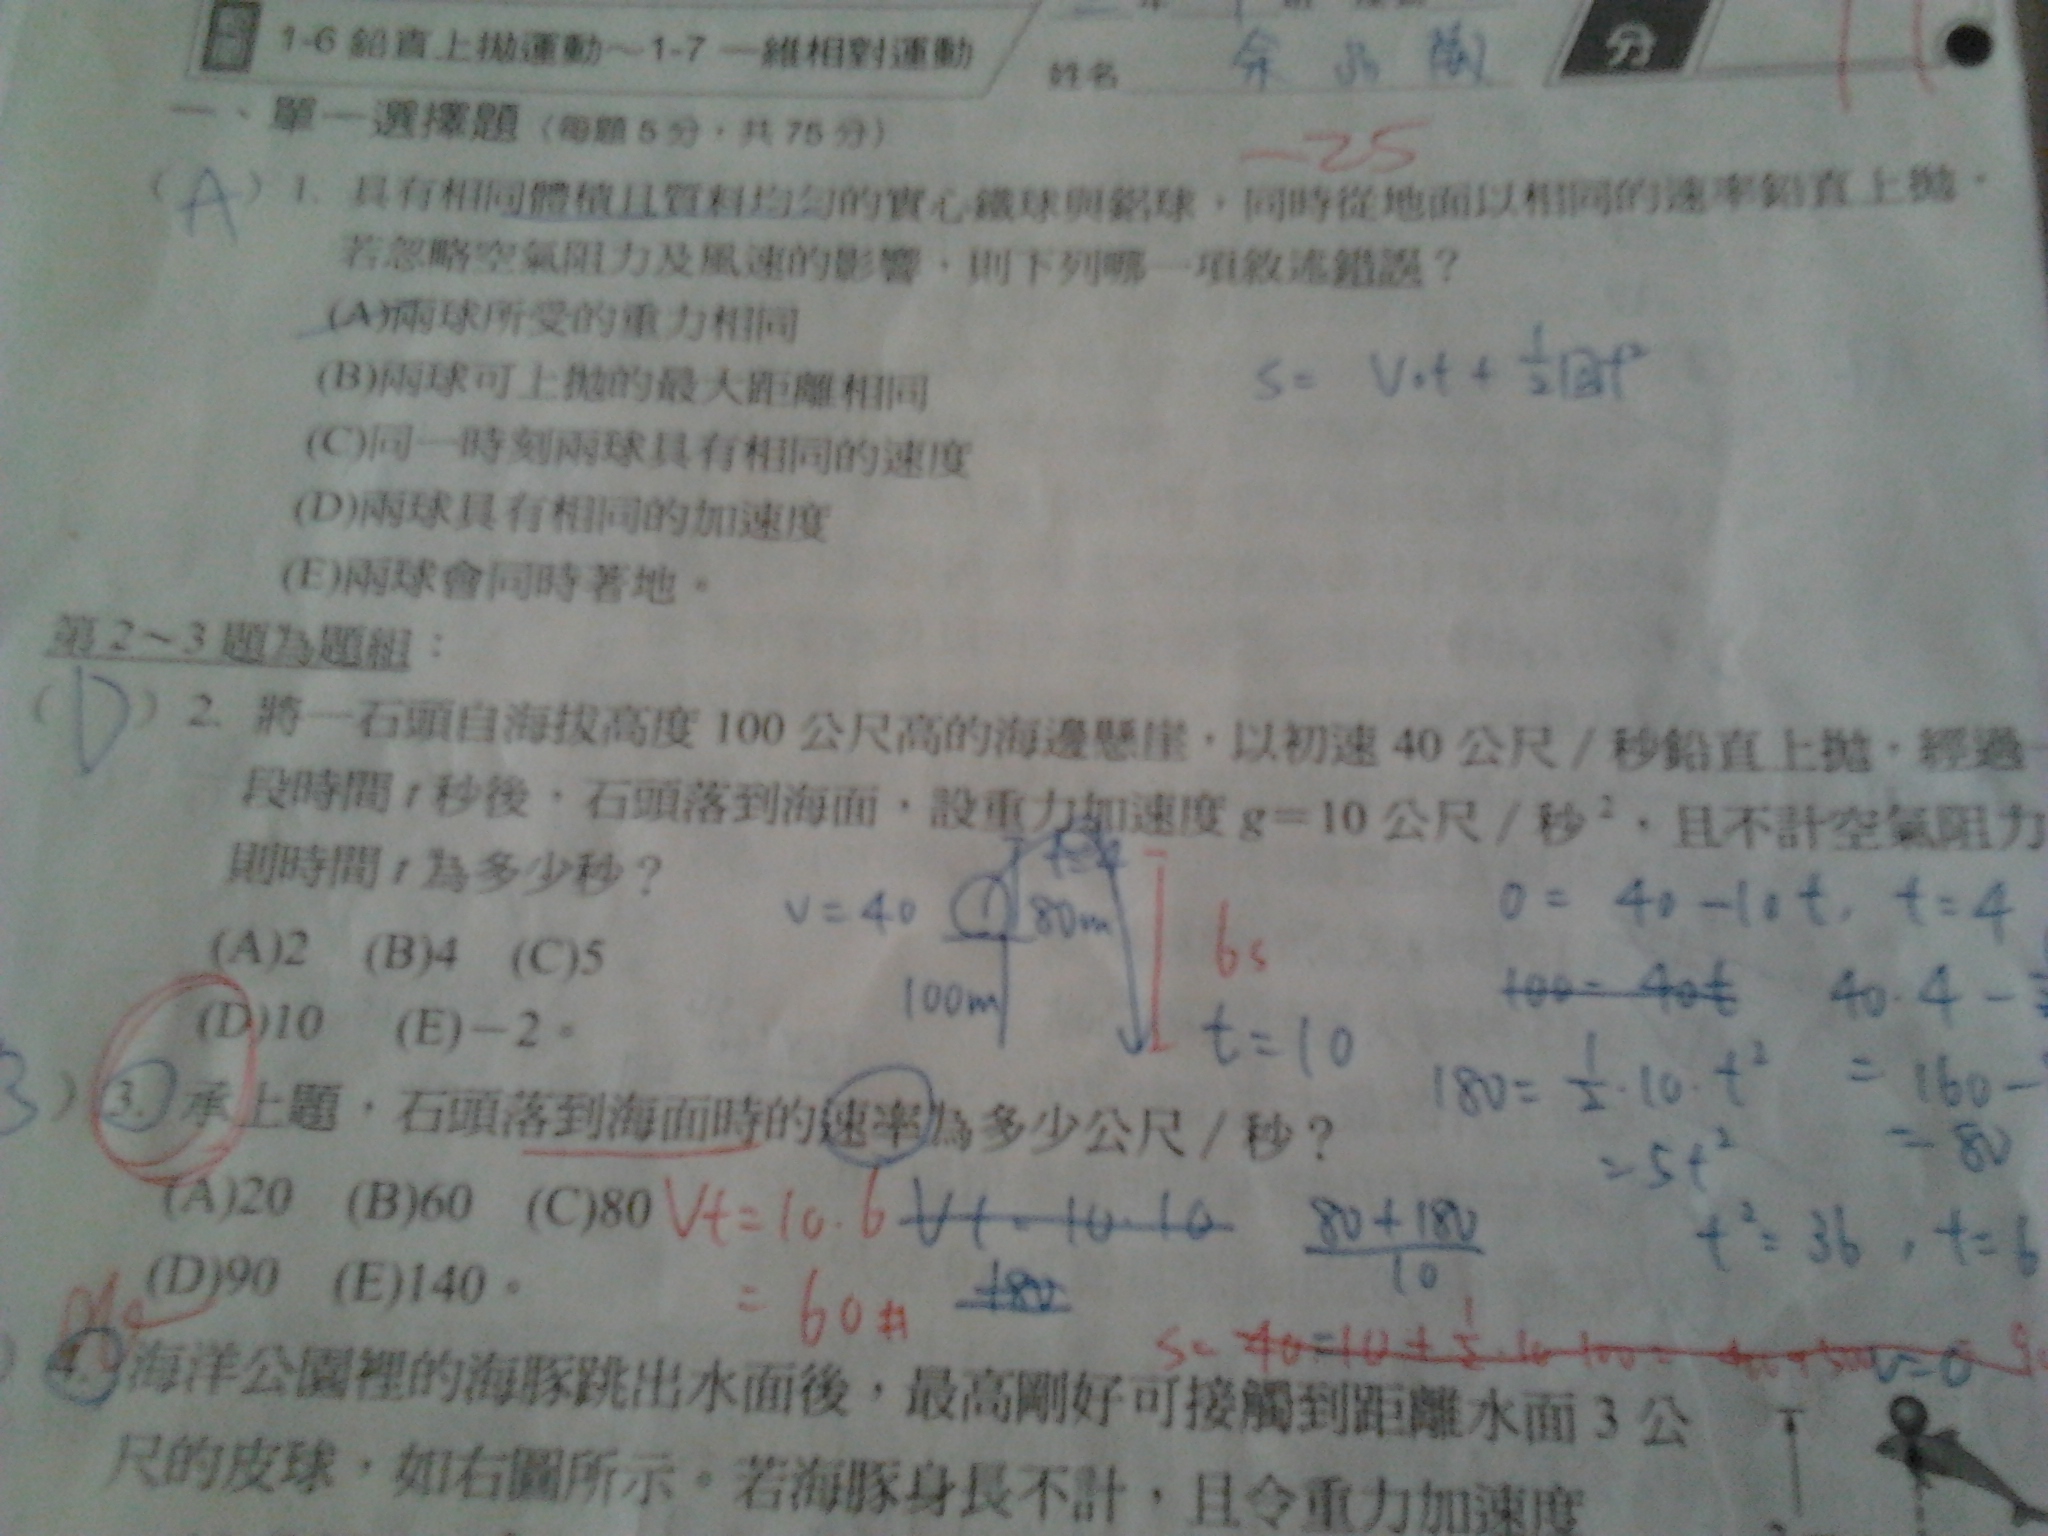 1-6 鉛直上拋運動～1-7 一維相對運動
姓名
分
一、單一選擇題（每題 5 分，共 75 分）
-25
(A) 1. 具有相同體積且質料均勻的實心鐵球與鋁球，同時從地面以相同的速率鉛直上拋，
若忽略空氣阻力及風速的影響，則下列哪一項敘述錯誤？
(A)兩球所受的重力相同
(B)兩球可上拋的最大距離相同
(C)同一時刻兩球具有相同的速度
(D)兩球具有相同的加速度
(E)兩球會同時著地。
第 2～3 題為題組：
(D) 2. 將一石頭自海拔高度 100 公尺高的海邊懸崖，以初速 40 公尺／秒鉛直上拋，經過一
段時間 t 秒後，石頭落到海面，設重力加速度 g＝10 公尺／秒²，且不計空氣阻力
則時間 t 為多少秒？
t=4
v=40 80m 6s 0= 40-10t, t=4
(A)2 (B)4 (C)5
100m t=10 100= 40t 40.4-
(D)10 (E)－2。
180= 1/2·10·t² = 160-
) 3. 承上題，石頭落到海面時的速率為多少公尺／秒？
=5t² = 80
(A)20 (B)60 (C)80 Vt=10.6 Vt=10·10 80+180/10 t²=36, t=6
(D)90 (E)140。 = 60# 180
v=0
4. 海洋公園裡的海豚跳出水面後，最高剛好可接觸到距離水面 3 公
尺的皮球，如右圖所示。若海豚身長不計，且令重力加速度